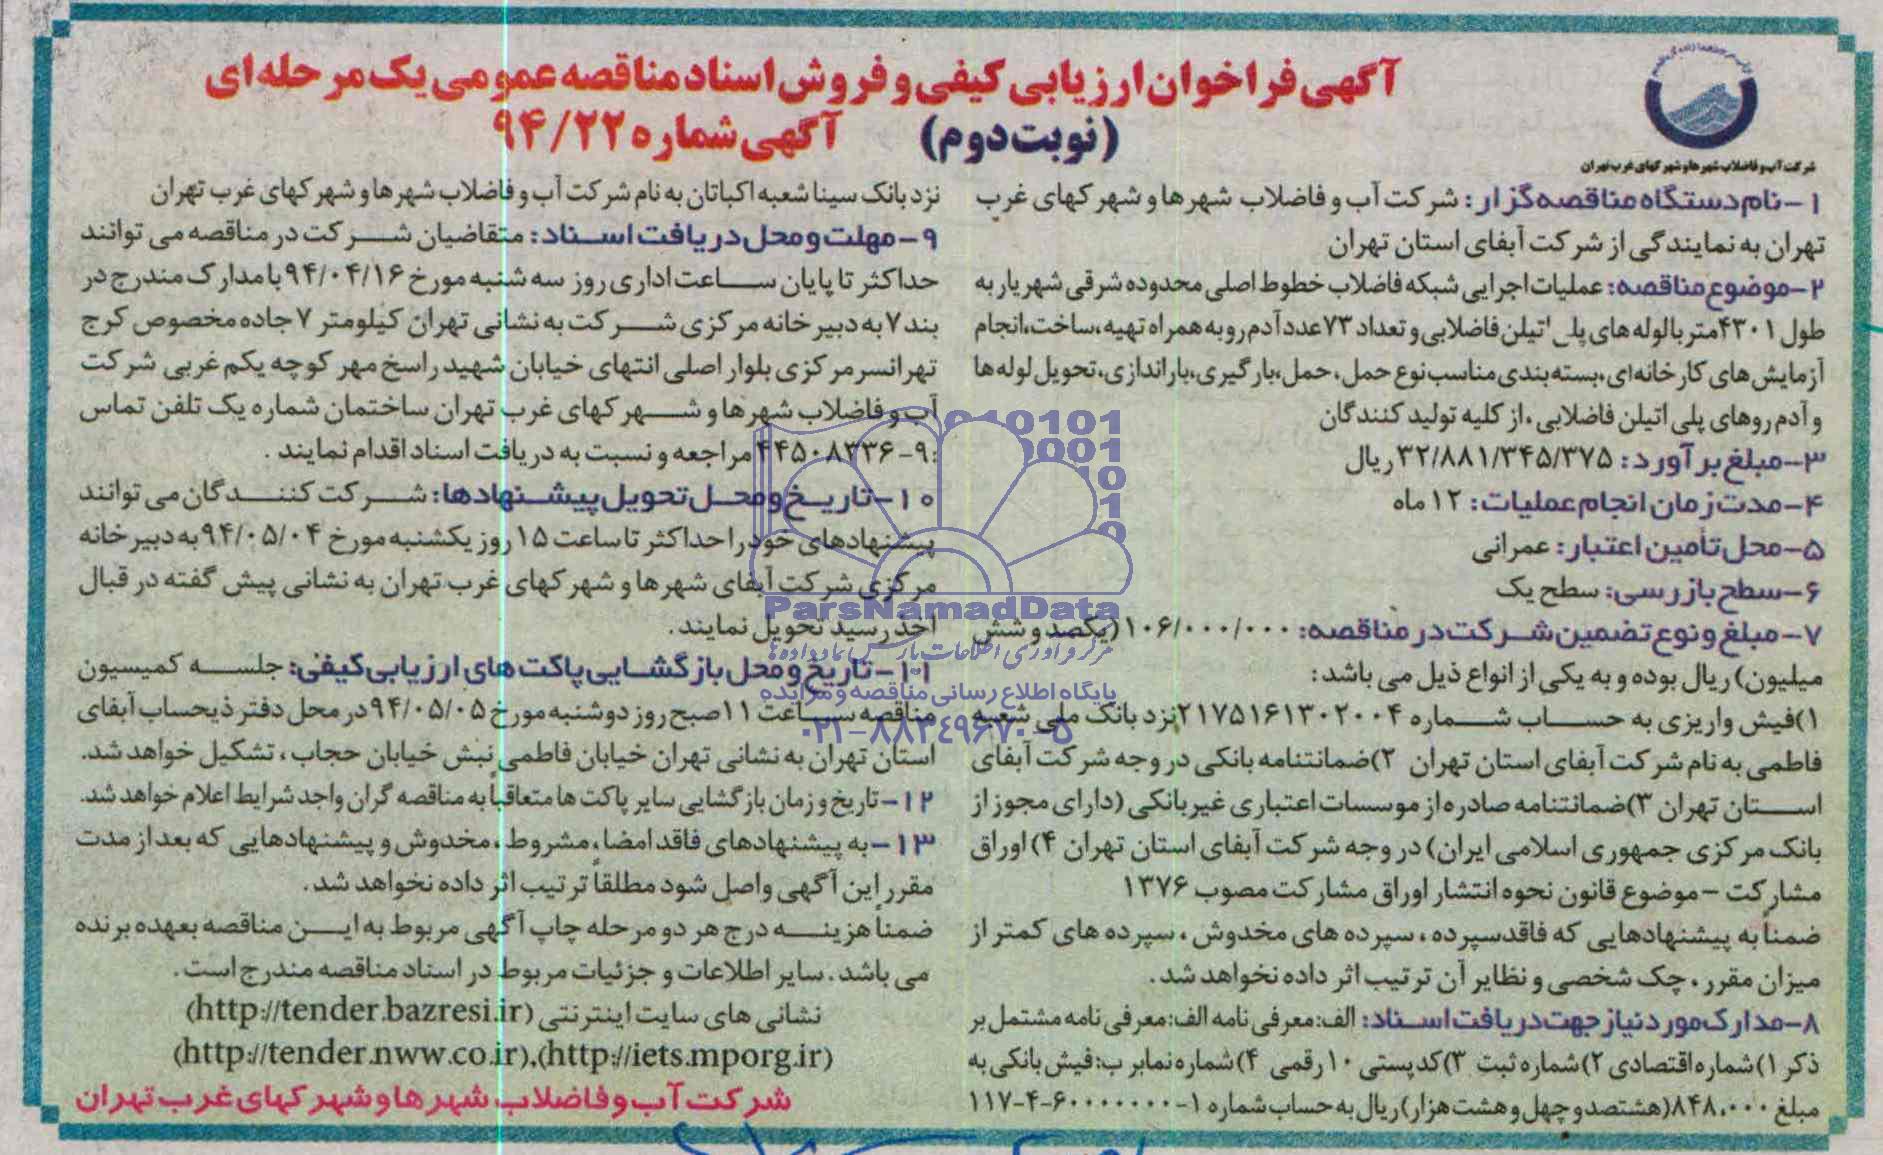 آگهی فراخوان ارزیابی کیفی و فروش اسناد مناقصه عمومی یک مرحله ای
(نوبت دوم) آگهی شماره ۹۴/۲۲
شرکت آب و فاضلاب شهرها و شهرکهای غرب تهران
۱-نام دستگاه مناقصه گزار: شرکت آب و فاضلاب شهرها و شهرکهای غرب
تهران به نمایندگی از شرکت آبفای استان تهران
۲-موضوع مناقصه: عملیات اجرایی شبکه فاضلاب خطوط اصلی محدوده شرقی شهریار به
طول ۴۳۰۱متر با لوله های پلی اتیلن فاضلابی و تعداد ۷۳عدد آدم رو به همراه تهیه،ساخت،انجام
آزمایش های کارخانه ای،بسته بندی مناسب نوع حمل،حمل،بارگیری،باراندازی،تحویل لوله ها
و آدم روهای پلی اتیلن فاضلابی،از کلیه تولیدکنندگان
۳-مبلغ برآورد: ۳۲/۸۸۱/۳۴۵/۳۷۵ریال
۴-مدت زمان انجام عملیات: ۱۲ماه
۵-محل تأمین اعتبار: عمرانی
۶-سطح بازرسی: سطح یک
۷-مبلغ و نوع تضمین شرکت در مناقصه: ۱۰۶/۰۰۰/۰۰۰(یکصد و شش
میلیون) ریال بوده و به یکی از انواع ذیل می باشد:
۱)فیش واریزی به حساب شماره ۲۱۷۵۱۶۱۳۰۲۰۰۴نزد بانک ملی شعبه
فاطمی به نام شرکت آبفای استان تهران ۲)ضمانتنامه بانکی در وجه شرکت آبفای
استان تهران ۳)ضمانتنامه صادره از موسسات اعتباری غیربانکی (دارای مجوز از
بانک مرکزی جمهوری اسلامی ایران) در وجه شرکت آبفای استان تهران ۴) اوراق
مشارکت - موضوع قانون نحوه انتشار اوراق مشارکت مصوب ۱۳۷۶
ضمناً به پیشنهادهایی که فاقد سپرده، سپرده های مخدوش، سپرده های کمتر از
میزان مقرر، چک شخصی و نظایر آن ترتیب اثر داده نخواهد شد.
۸-مدارک مورد نیاز جهت دریافت اسناد: الف:معرفی نامه الف:معرفی نامه مشتمل بر
ذکر ۱)شماره اقتصادی ۲)شماره ثبت ۳)کدپستی ۱۰رقمی ۴)شماره نمابر ب:فیش بانکی به
مبلغ ۸۴۸،۰۰۰(هشتصد و چهل و هشت هزار) ریال به حساب شماره ۱-۶۰۰۰۰۰۰۰-۴-۱۱۷
نزد بانک سینا شعبه اکباتان به نام شرکت آب و فاضلاب شهرها و شهرکهای غرب تهران
۹-مهلت و محل دریافت اسناد: متقاضیان شرکت در مناقصه می توانند
حداکثر تا پایان ساعت اداری روز سه شنبه مورخ ۹۴/۰۴/۱۶با مدارک مندرج در
بند ۷ به دبیرخانه مرکزی شرکت به نشانی تهران کیلومتر ۷ جاده مخصوص کرج
تهرانسر مرکزی بلوار اصلی انتهای خیابان شهید راسخ مهر کوچه یکم غربی شرکت
آب و فاضلاب شهرها و شهرکهای غرب تهران ساختمان شماره یک تلفن تماس
:۹-۴۴۵۰۸۳۳۶مراجعه و نسبت به دریافت اسناد اقدام نمایند.
۱۰-تاریخ و محل تحویل پیشنهادها: شرکت کنندگان می توانند
پیشنهادهای خود را حداکثر تا ساعت ۱۵ روز یکشنبه مورخ ۹۴/۰۵/۰۴به دبیرخانه
مرکزی شرکت آبفای شهرها و شهرکهای غرب تهران به نشانی پیش گفته در قبال
اخذ رسید تحویل نمایند.
۱۱-تاریخ و محل بازگشایی پاکت های ارزیابی کیفی: جلسه کمیسیون
مناقصه ساعت ۱۱صبح روز دوشنبه مورخ ۹۴/۰۵/۰۵در محل دفتر ذیحساب آبفای
استان تهران به نشانی تهران خیابان فاطمی نبش خیابان حجاب، تشکیل خواهد شد.
۱۲- تاریخ و زمان بازگشایی سایر پاکت ها متعاقباً به مناقصه گران واجد شرایط اعلام خواهد شد.
۱۳-به پیشنهادهای فاقد امضا،مشروط،مخدوش و پیشنهادهایی که بعد از مدت
مقرر این آگهی واصل شود مطلقاً ترتیب اثر داده نخواهد شد.
ضمناً هزینه درج هر دو مرحله چاپ آگهی مربوط به این مناقصه بعهده برنده
می باشد. سایر اطلاعات و جزئیات مربوط در اسناد مناقصه مندرج است.
نشانی های سایت اینترنتی (http://tender.bazresi.ir)
(http://tender.nww.co.ir),(http://iets.mporg.ir)
شرکت آب و فاضلاب شهرها و شهرکهای غرب تهران
ParsNamadData
مرکز فرآوری اطلاعات پارس نماد داده ها
پایگاه اطلاع رسانی مناقصه و مزایده
۰۲۱-۸۸۳۴۹۶۷۰-۵